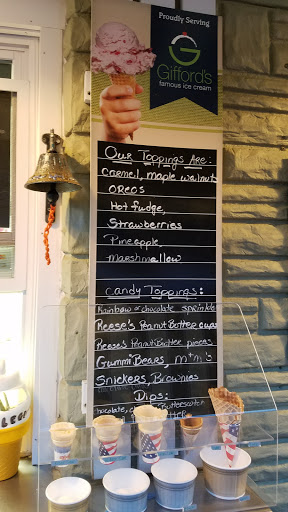 Proudly Serving
G
Gifford's
famous ice cream
Our Toppings Are:
Carmeil, maple walnuts
OREOS
Hot fudge,
Strawberries
Pineapple,
marshmallow
Candy Toppings:
Rainbow or chocolate sprinkle
Reese's Peanut Butter cups
Reese's Peanut Butter pieces
Gummi Bears, m+m's
Snickers, Brownies
Dips:
chocolate, Butterscotch